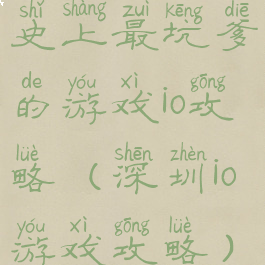 shǐ shàng zuì kēng diē
史上最坑爹
de yóu xì gōng
的游戏io攻
lüè shēn zhèn
略（深圳io
yóu xì gōng lüè
游戏攻略）